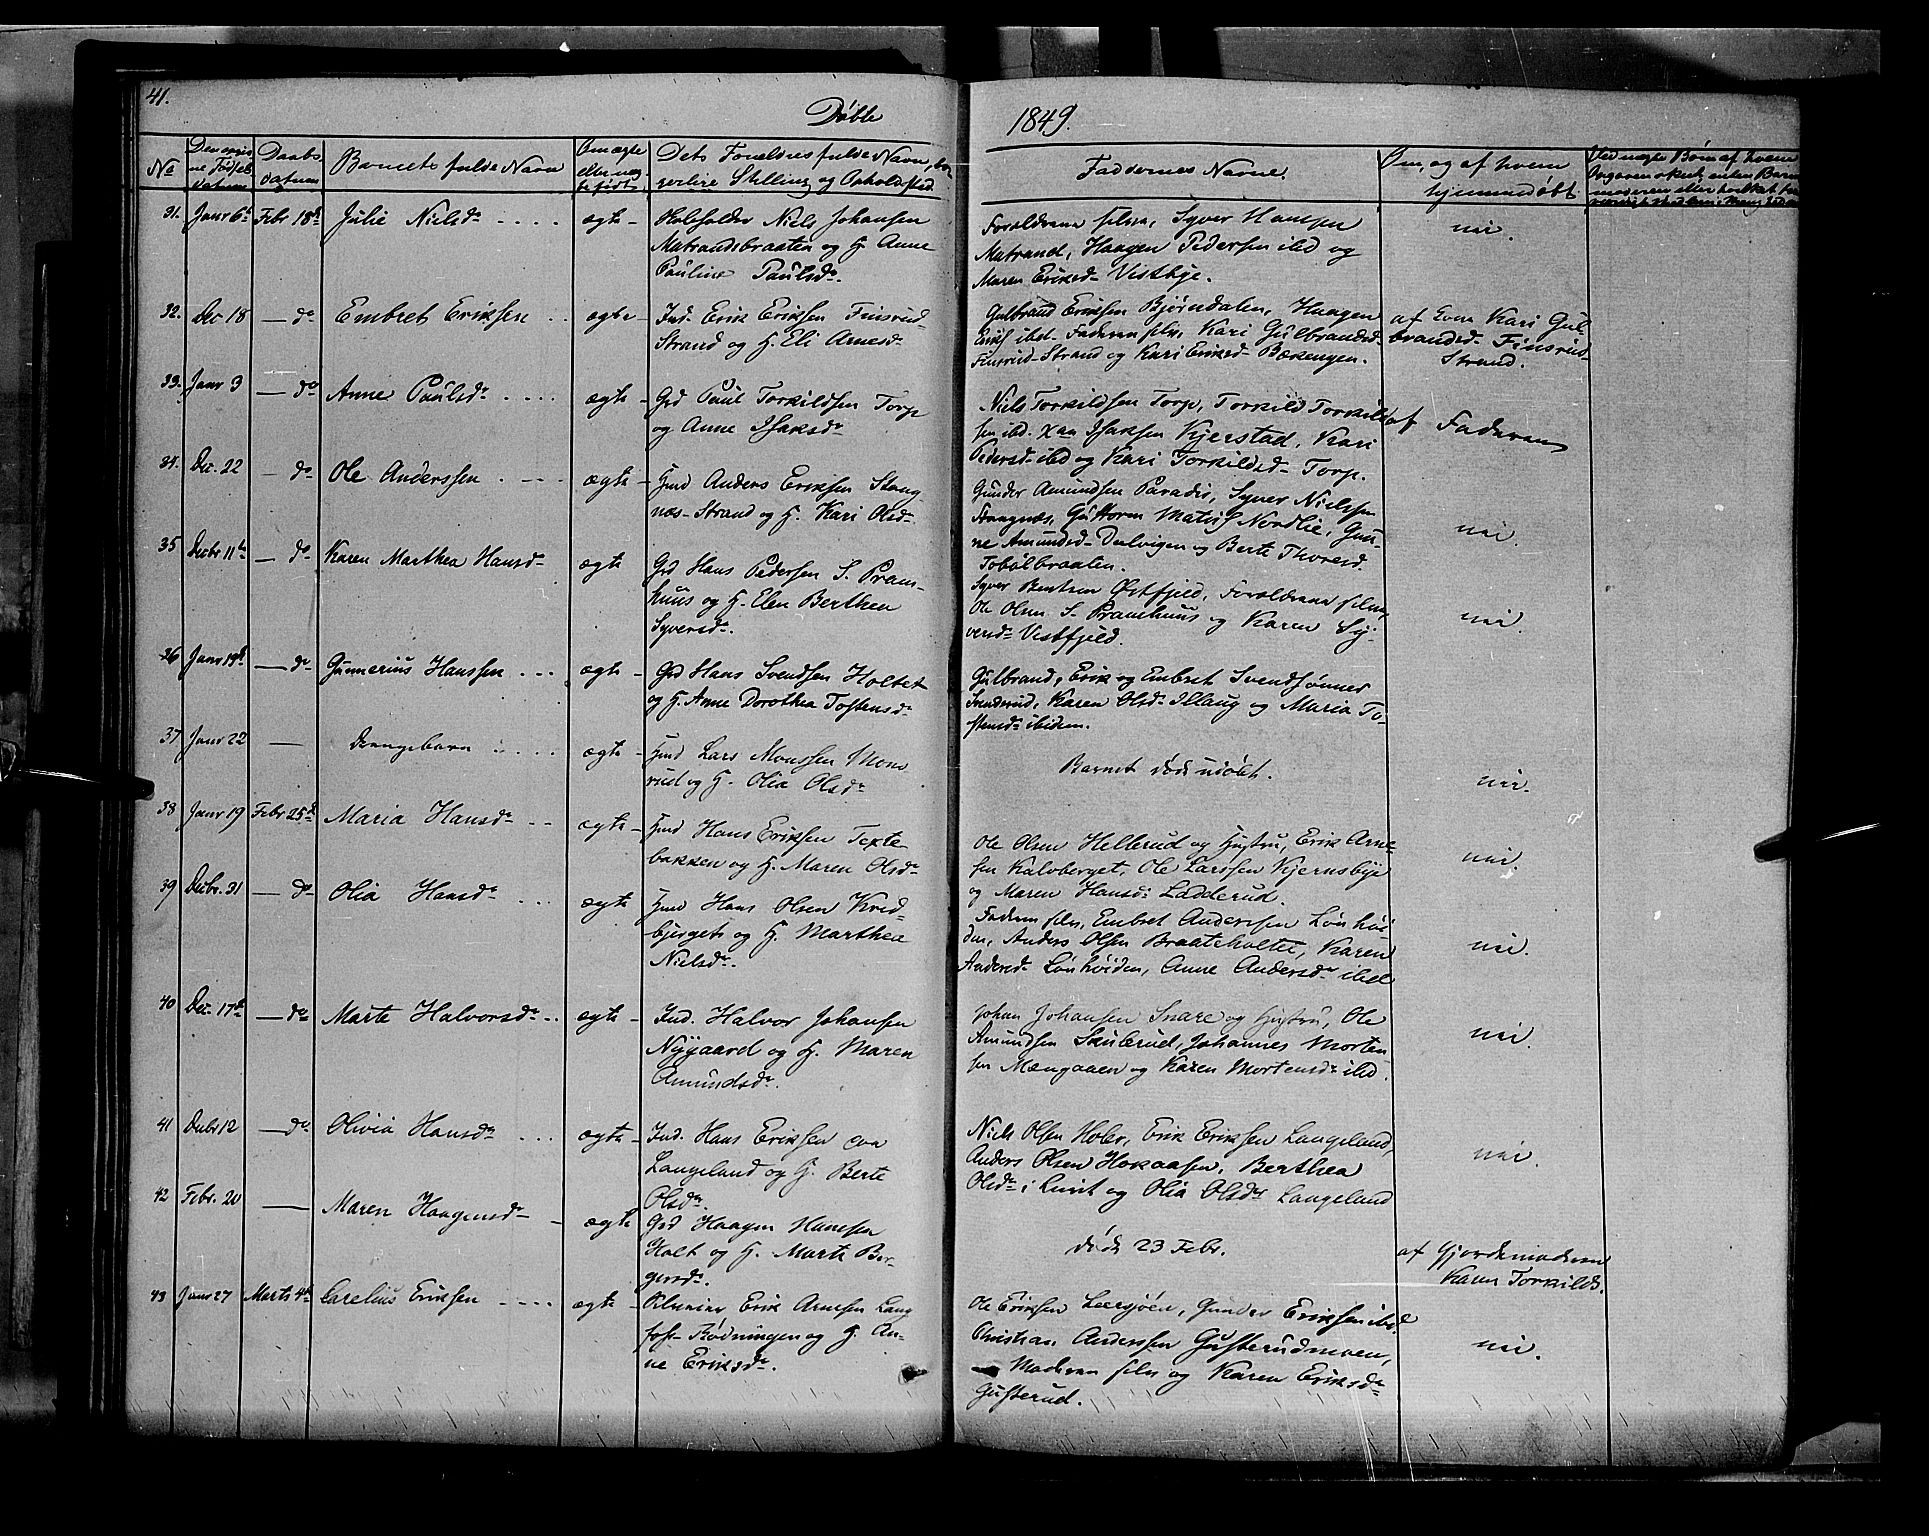 41.
Døbte
1849.
No
Daabs
datum
Barnets fulde Navn
Om ægte
Dets Forældres fulde Navn, bor-
gerlige Stilling og Opholdsted
Faddernes Navne.
Om, og af hvem
hjemmedøbt
31. Janr 6te Febr 18de Julie Nielsdr ægte
Niels Johansen
Matrandsbraaten og H. Anne
Pauline Paulsdr.
Forældrene selv, Syver Hansen
Matrand, Haagen Pedersen ibd og
Maren Eriksd. Vestbye.
nei.
32. Dec 18 — do Embret Eriksen ægte
Ind. Erik Eriksen Finsrud-
Strand og H. Eli Arnesdr
Gulbrand Eriksen Bjørndalen, Haagen
Eriks ibd. Faderen selv, Kari Gulbrandsd.
Finsrud-Strand og Kari Eriksd. Bækengen.
af Kari Gul-
brandsd. Finsrud-
Strand.
33. Janr 3 — do Anne Paulsdr ægte
Grd Paul Torkildsen Torp
og Anne Isaksdr
Niels Torkildsen Torp, Torkild Torkild-
sen ibd. Isaksen Kjerstad, Kari
Pedersd. ibd og Kari Torkildsd. Torp.
af Faderen
34. Dec. 22 — do Ole Anderssen ægte
Hmd Anders Eriksen Stang
næs-Strand og H. Kari Olsdr
Gunder Amundsen Paradis, Syver Nielsen
Stangnæs, Guttorm Nordlie, Gun-
ne Amundsd. og Berte Thoresd.
Tobølbraaten.
nei.
35 Decbr 11te — do Karen Marthea Hansdr ægte
Grd Hans Pedersen S. Pram-
huus og H. Elen Berthea
Syversdr.
Syver Bentsen Østfjeld, Forældrene selv,
Ole Olsen S. Pramhuus og Karen Sy-
versdr Vestfjeld.
nei.
36 Janr 19de — do Gunnerius Hanssen ægte
Grd Hans Svendsen Holtet
og H. Anne Dorothea Tostensdr
Gulbrand, Erik og Embret Svendsønner
Karen Olsdr Illaug og Maria To-
stensdr ibidem.
37 Janr 22 — Drengebarn ægte
Hmd Lars Monssen Mons
rud og H. Olia Olsdr
Barnet døde udøbt.
nei.
38 Janr 19 Febr 25de Maria Hansdr ægte
Hmd Hans Eriksen Texte-
bakken og H. Maren Olsdr
Ole Olsen Hellerud og Hustru, Erik Arne-
sen Kalvberget, Ole Larssen Kjernsbye
og Maren Hansdr Ladderud.
nei.
39 Decbr. 31 — do Olia Hansdr ægte
Hmd Hans Olsen Kved-
bjerget og H. Marthea
Nielsdr.
Faderen selv, Embret Anderssen Lønhøi-
den, Anders Olsen Braateholtet, Karen
Andersd. Lønhøiden, Anne Andersdr ibd
nei.
40 Dec. 17de — do Marte Halvorsdr ægte
Ind. Halvor Johansen
Nygaard og H. Maren
Amundsdr.
Johan Johansen Snare og Hustru, Ole
Amundsen Skulerud, Johannes Morten-
sen Mængaaen og Karen Mortensdr ibd.
nei.
41 Decbr 12 — do Olivia Hansdr ægte
Ind. Hans Eriksen
Langeland og H. Berte
Olsdr.
Niels Olsen Holer, Erik Eriksen Langeland,
Anders Olsen Hokaasen, Berthea
Olsdr i og Olia Olsdr Langeland
nei.
42 Febr. 20 — Maren Haagensdr ægte
Grd Haagen Hanssen
Holt og H. Marte Bør-
gersdr.
døde 23 Febr.
af Gjordemoderen
Karen Torkilds.
43 Janr 27 Marts 4de Carelius Eriksen ægte
Erik Arnesen Lang
fos-Rødningen og H. An-
ne Eriksdr.
Ole Eriksen Lærsjøen, Gunder Eriksen ibd.
Christian Anderssen Gusterudmoen,
Moderen selv og Karen Eriksdr
Gusterud.
nei.